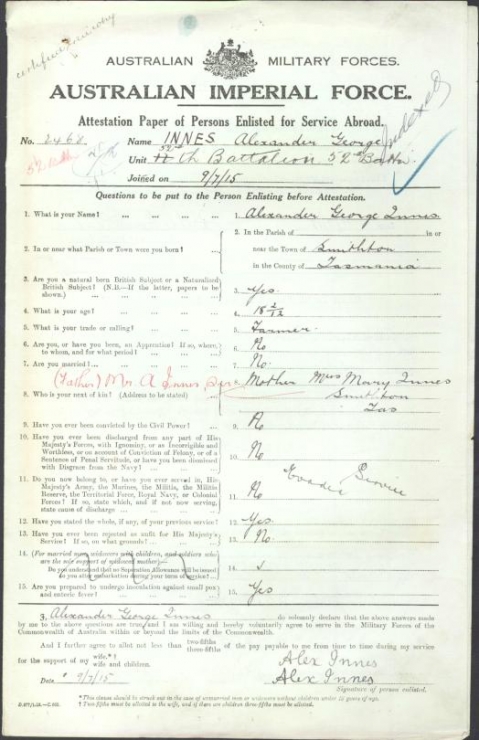 AUSTRALIAN MILITARY FORCES.
AUSTRALIAN IMPERIAL FORCE.
Attestation Paper of Persons Enlisted for Service Abroad.
Indexed
No. 2468 Name INNES Alexander George
52 Battn Unit th Battalion 52nd Battn
Joined on 9/7/15
Questions to be put to the Person Enlisting before Attestation.
1. What is your Name? 1. Alexander George Innes
2. In or near what Parish or Town were you born? 2. In the Parish of in or
near the Town of Smithton
in the County of Tasmania
3. Are you a natural born British Subject or a Naturalized British Subject? (N.B.—If the latter, papers to be shown.) 3. Yes.
4. What is your age? 4. 18 2/12
5. What is your trade or calling? 5. Farmer.
6. Are you, or have you been, an Apprentice? If so, where, to whom, and for what period? 6. No
7. Are you married? 7. No.
(Father) Mr A Innes
8. Who is your next of kin? (Address to be stated) 8. Mother Mrs Mary Innes
Smithton
Tas
9. Have you ever been convicted by the Civil Power? 9. No
10. Have you ever been discharged from any part of His Majesty's Forces, with Ignominy, or as Incorrigible and Worthless, or on account of Conviction of Felony, or of a Sentence of Penal Servitude, or have you been dismissed with Disgrace from the Navy? 10. No
11. Do you now belong to, or have you ever served in, His Majesty's Army, the Marines, the Militia, the Militia Reserve, the Territorial Force, Royal Navy, or Colonial Forces? If so, state which, and if not now serving, state cause of discharge 11. No
12. Have you stated the whole, if any, of your previous service? 12. Yes
13. Have you ever been rejected as unfit for His Majesty's Service? If so, on what grounds? 13. No
14. (For married men, widowers with children, and soldiers who are the sole support of widowed mother)
Do you understand that no Separation Allowance will be issued to you after embarkation during your term of service? 14.
15. Are you prepared to undergo inoculation against small pox and enteric fever? 15. Yes
I, Alexander George Innes do solemnly declare that the above answers made by me to the above questions are true, and I am willing and hereby voluntarily agree to serve in the Military Forces of the Commonwealth of Australia within or beyond the limits of the Commonwealth.
And I further agree to allot not less than two-fifths three-fifths of the pay payable to me from time to time during my service
for the support of my wife.*† wife and children. Alex Innes
Date 9/7/15 Alex Innes
Signature of person enlisted.
*This clause should be struck out in the case of unmarried men or widowers without children under 18 years of age.
† Two-fifths must be allotted to the wife, and if there are children three-fifths must be allotted.